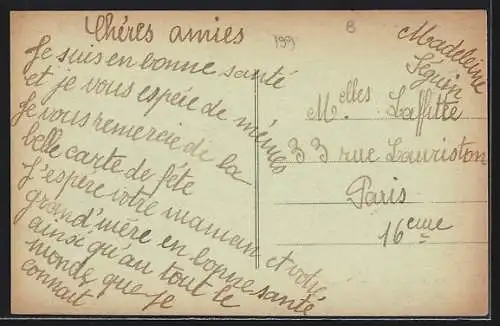 Chères amies
Je suis en bonne santé
et je vous espére de mêmes
Je vous remercie di la
belle carte de fête
J'espère votre maman et votre
grand'mère en bonne santé
ainsi qu'au tout le
monde que je
connait
Madeleine
Séguin
199
8
Melles Laffitte
33 rue Lauriston
Paris
16eme